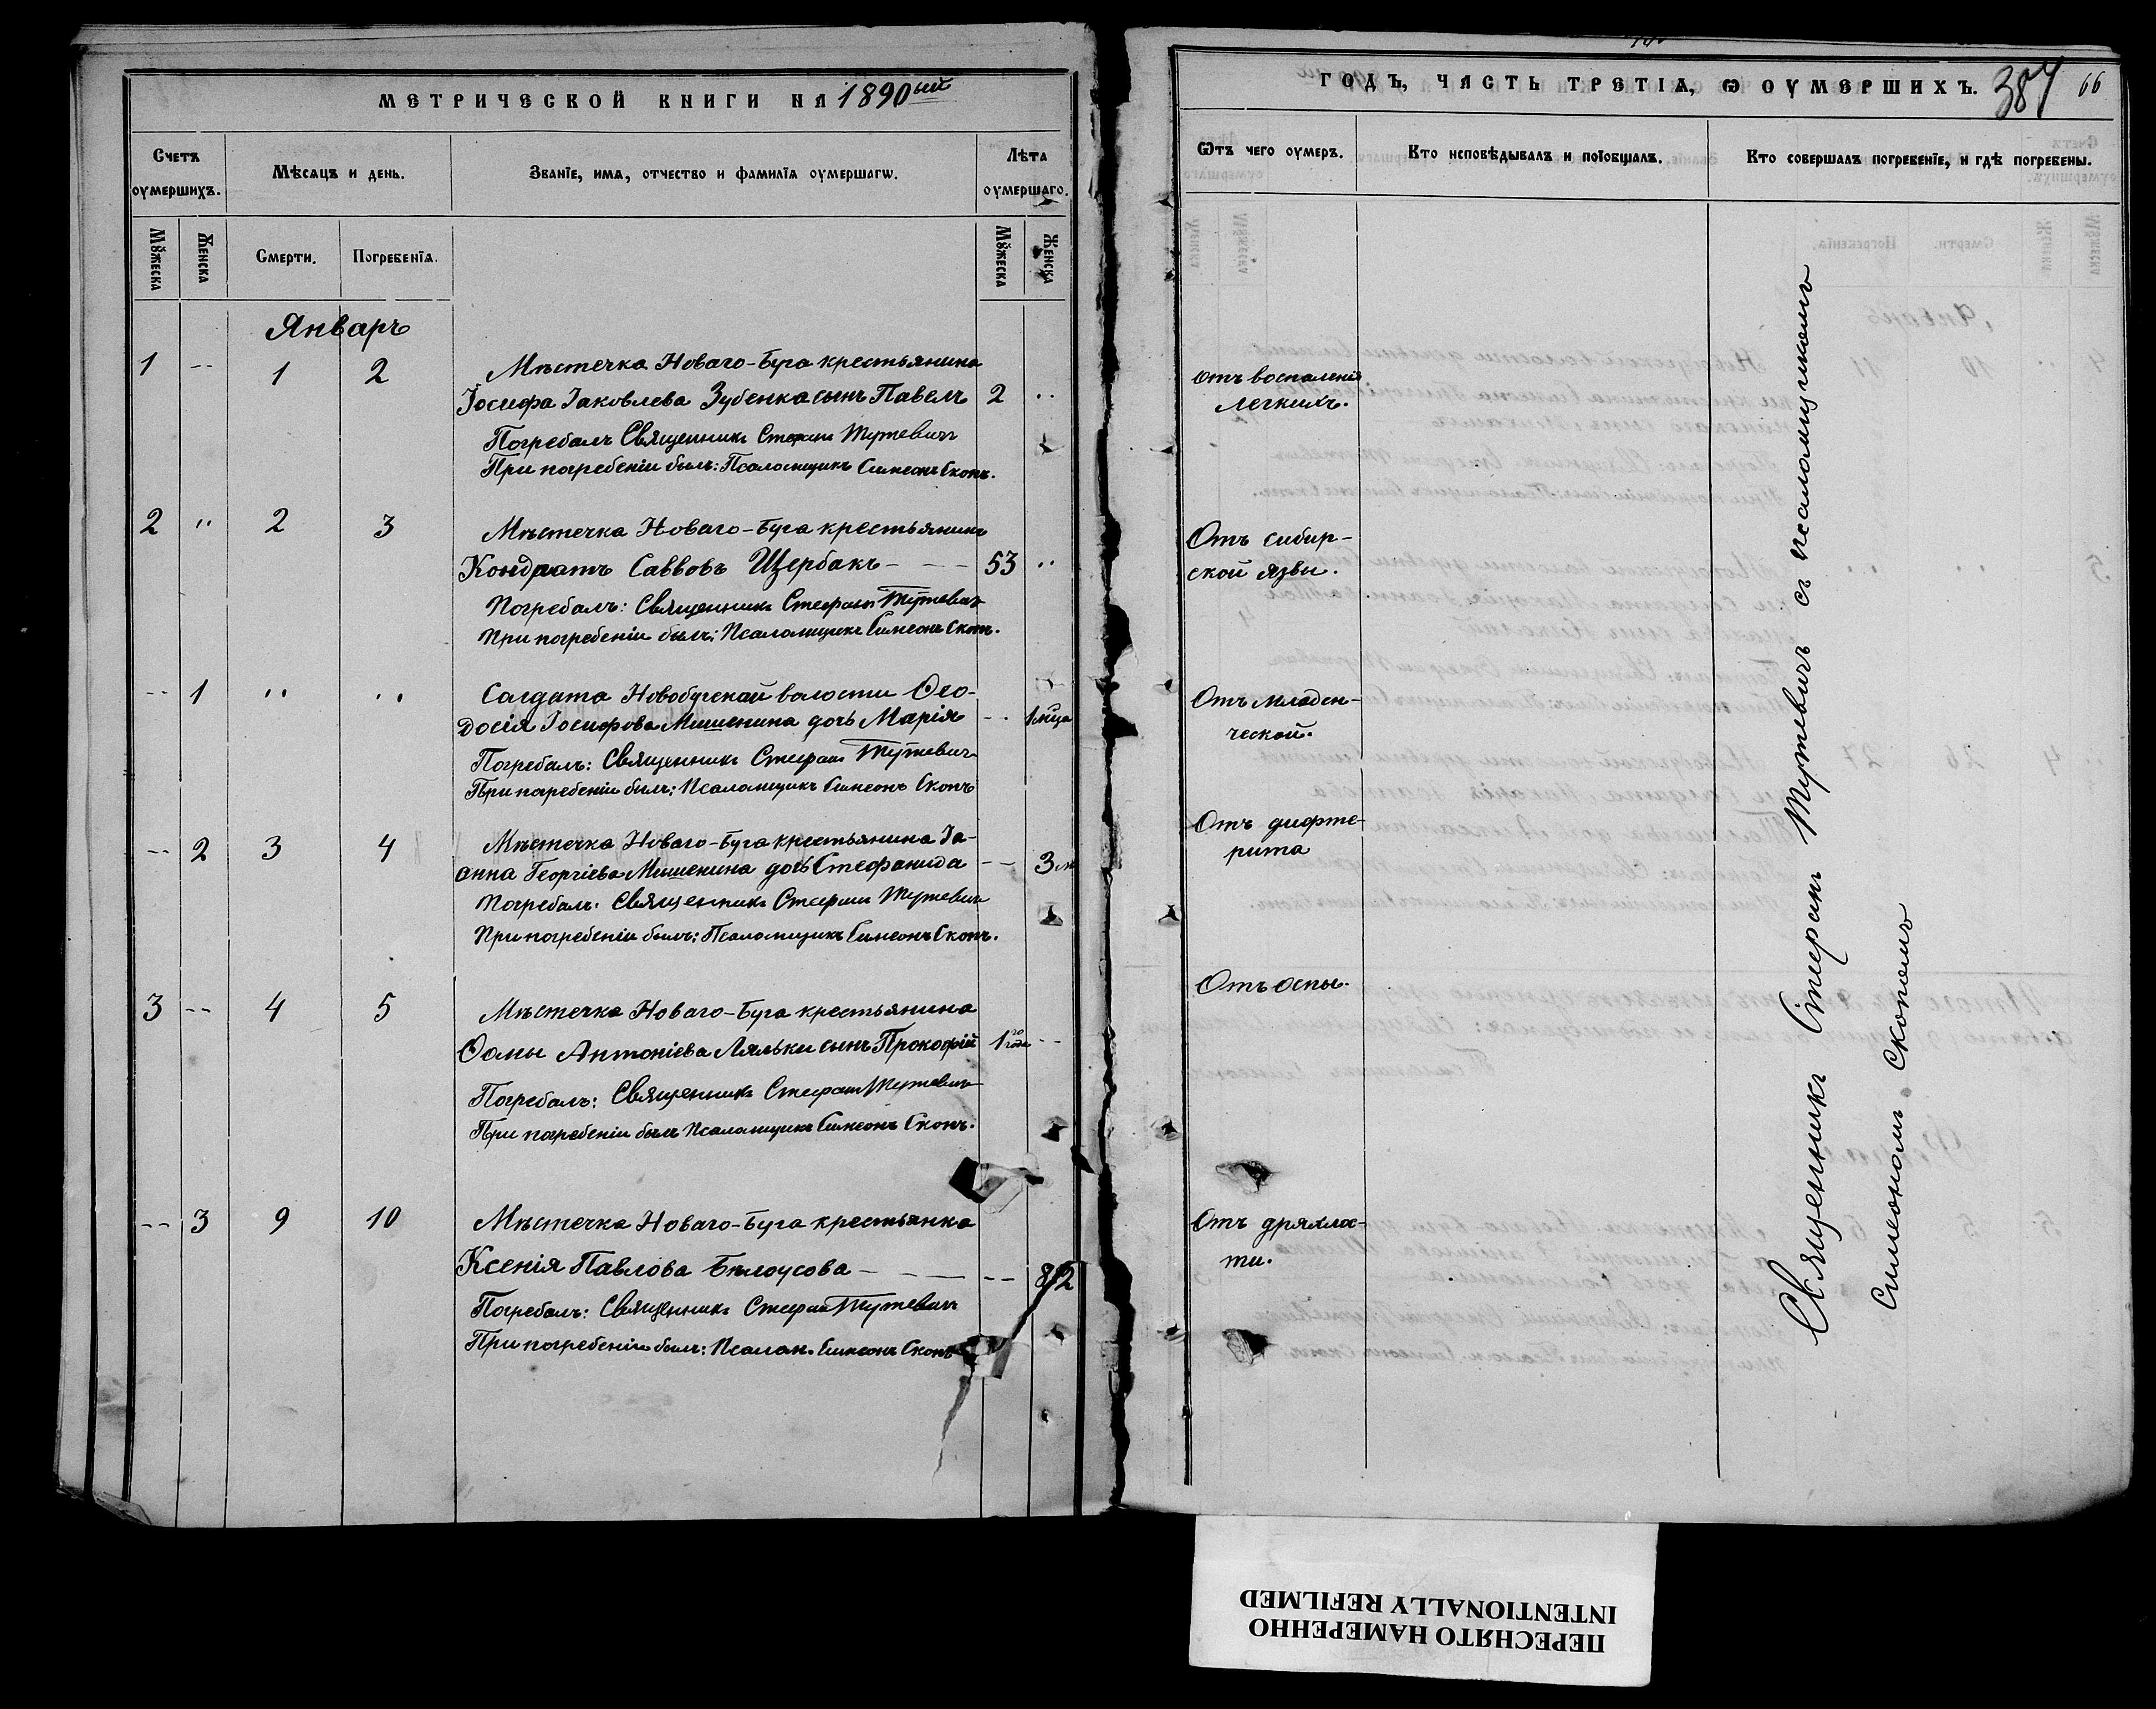 МЕТРИЧЕСКОЙ КНИГИ НА 1890ый
Счетъ оумершихъ.
Мѣсяцъ и день.
Званїе, имя, отчество и фамилїя оумершагѡ.
Лѣта оумершаго.
Мꙋжеска
Женска
Смерти.
Погребенїя.
Мꙋжеска
Женска
Январь
1 -- 1 2 Мѣстечка Новаго-Буга крестьянина
Іосифа Іаковлева Зубенка сынъ Павелъ 2 ..
Погребалъ Священникъ Стефанъ Тутевичъ
При погребеніи былъ: Псаломщикъ Симеонъ Скопъ.
2 " 2 3 Мѣстечка Новаго-Буга крестьянинъ
Кондратъ Саввовъ Щербакъ - - - 53 ..
Погребалъ: Священникъ Стефанъ Тутевичъ
При погребеніи былъ: Псаломщикъ Симеонъ Скопъ.
-- 1 .. .. Солдата Новобугской волости Ѳео-
досія Іосифова Мишенина дочь Марія -- 1 мца
Погребалъ: Священникъ Стефанъ Тутевичъ
При погребеніи былъ: Псаломщикъ Симеонъ Скопъ
-- 2 3 4 Мѣстечка Новаго-Буга крестьянина Іо-
анна Георгіева Мишенина дочь Стефанида -- 3 м
Погребалъ: Священникъ Стефанъ Тутевичъ
При погребеніи былъ: Псаломщикъ Симеонъ Скопъ.
3 -- 4 5 Мѣстечка Новаго-Буга крестьянина
Ѳомы Антоніева Ляльки сынъ Прокофій 1го года --
Погребалъ: Священникъ Стефанъ Тутевичъ
При погребеніи былъ Псаломщикъ Симеонъ Скопъ.
-- 3 9 10 Мѣстечка Новаго-Буга крестьянка
Ксенія Павлова Бѣлоусова - - - -- 82
Погребалъ: Священникъ Стефанъ Тутевичъ
При погребеніи былъ: Псалом. Симеонъ Скопъ
ГОДЪ, ЧАСТЬ ТРЕТІѦ, Ѡ ОУМЕРШИХЪ. 384 66
Ѿтъ чего оумеръ.
Кто исповѣдывалъ и прїобщалъ.
Кто совершалъ погребенїе, и гдѣ погребены.
Отъ воспаленія
легкихъ.
Отъ сибир-
ской язвы.
Отъ младен-
ческой.
Отъ дифте-
рита
Отъ оспы.
Отъ дряхлос-
ти.
Священникъ Стефанъ Тутевичъ съ псаломщикомъ
Симеономъ Скопомъ
ПЕРЕСНЯТО НАМЕРЕННО
INTENTIONALLY REFILMED